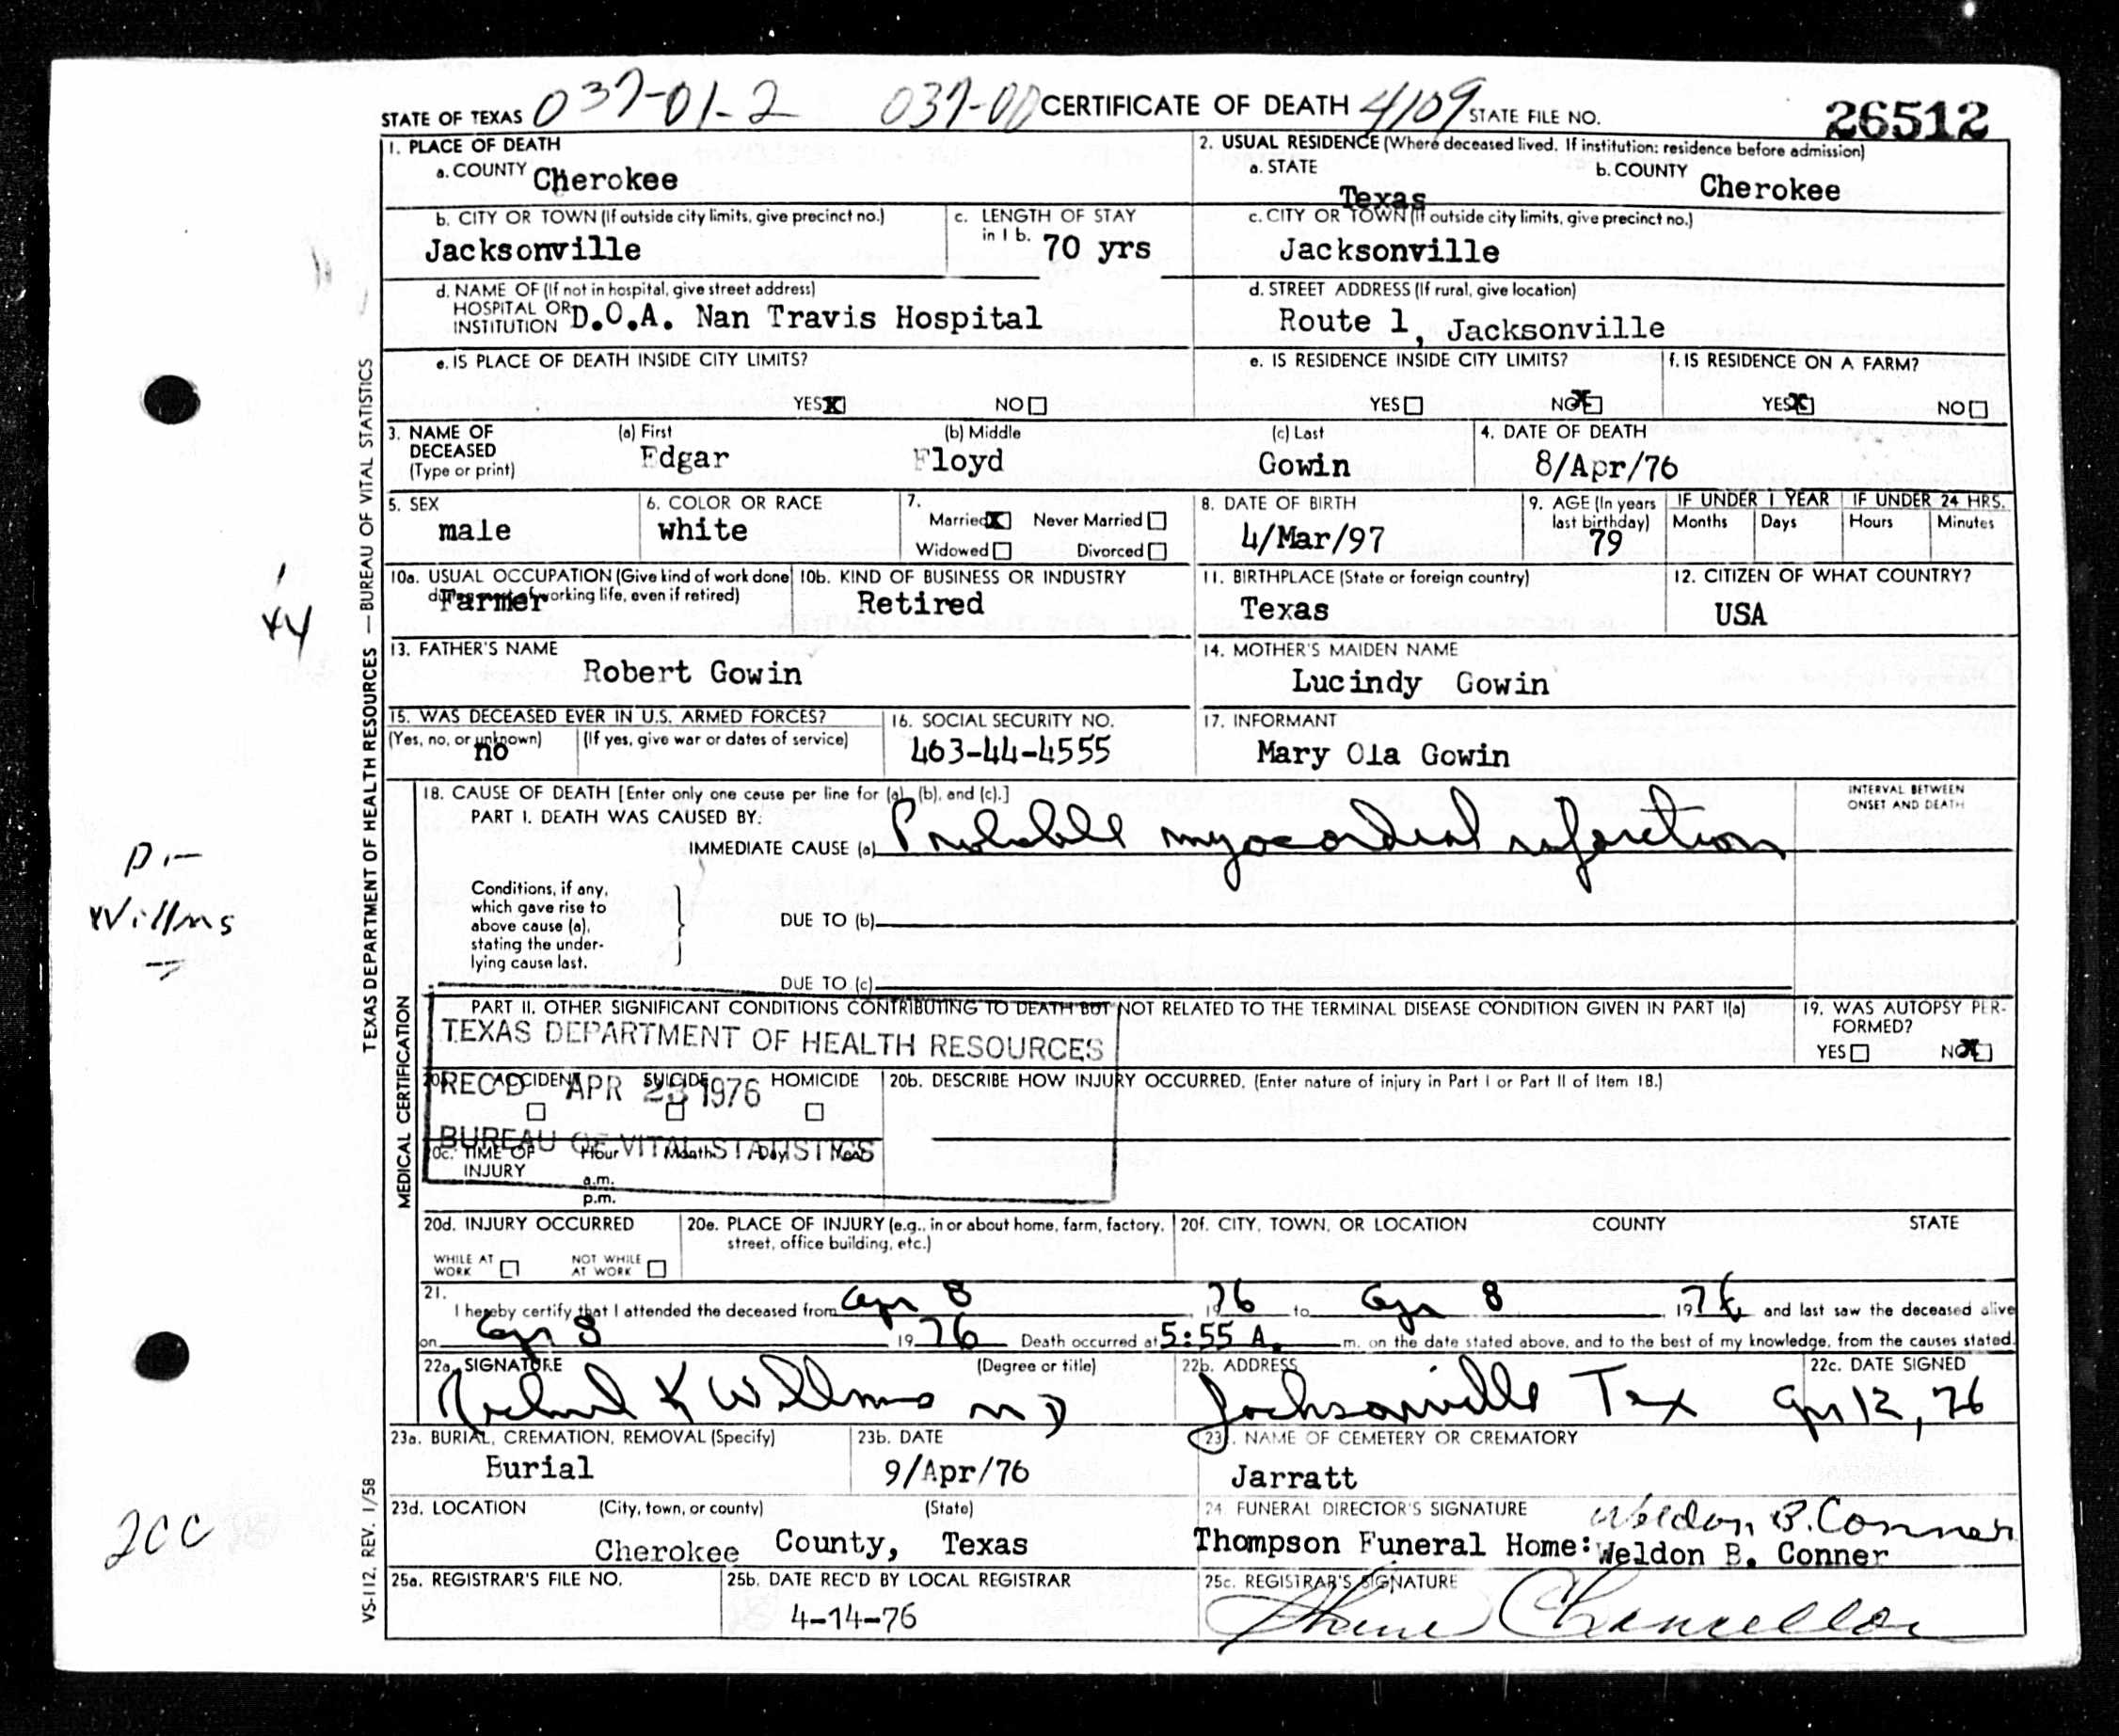 STATE OF TEXAS 037-01-2 037-00 CERTIFICATE OF DEATH 4109 STATE FILE NO. 26512
1. PLACE OF DEATH
a. COUNTY Cherokee
2. USUAL RESIDENCE (Where deceased lived. If institution: residence before admission)
a. STATE Texas b. COUNTY Cherokee
b. CITY OR TOWN (If outside city limits, give precinct no.)
Jacksonville
c. LENGTH OF STAY
in 1 b. 70 yrs
c. CITY OR TOWN (If outside city limits, give precinct no.)
Jacksonville
d. NAME OF (If not in hospital, give street address)
HOSPITAL OR
INSTITUTION D.O.A. Nan Travis Hospital
d. STREET ADDRESS (If rural, give location)
Route 1, Jacksonville
e. IS PLACE OF DEATH INSIDE CITY LIMITS?
YES NO
e. IS RESIDENCE INSIDE CITY LIMITS?
YES NO
f. IS RESIDENCE ON A FARM?
YES NO
3. NAME OF
DECEASED
(Type or print)
(a) First
Edgar
(b) Middle
Floyd
(c) Last
Gowin
4. DATE OF DEATH
8/Apr/76
5. SEX
male
6. COLOR OR RACE
white
7.
Married Never Married
Widowed Divorced
8. DATE OF BIRTH
4/Mar/97
9. AGE (In years
last birthday)
79
IF UNDER 1 YEAR
Months Days
IF UNDER 24 HRS.
Hours Minutes
10a. USUAL OCCUPATION (Give kind of work done
working life, even if retired)
Farmer
10b. KIND OF BUSINESS OR INDUSTRY
Retired
11. BIRTHPLACE (State or foreign country)
Texas
12. CITIZEN OF WHAT COUNTRY?
USA
13. FATHER'S NAME
Robert Gowin
14. MOTHER'S MAIDEN NAME
Lucindy Gowin
15. WAS DECEASED EVER IN U.S. ARMED FORCES?
(Yes, no, or unknown) (If yes, give war or dates of service)
no
16. SOCIAL SECURITY NO.
463-44-4555
17. INFORMANT
Mary Ola Gowin
18. CAUSE OF DEATH [Enter only one cause per line for (a), (b), and (c).]
PART I. DEATH WAS CAUSED BY:
IMMEDIATE CAUSE (a) Probable myocardial infarction
INTERVAL BETWEEN
ONSET AND DEATH
Conditions, if any,
which gave rise to
above cause (a),
stating the under-
lying cause last.
DUE TO (b)
DUE TO (c)
PART II. OTHER SIGNIFICANT CONDITIONS CONTRIBUTING TO DEATH BUT NOT RELATED TO THE TERMINAL DISEASE CONDITION GIVEN IN PART I(a)
19. WAS AUTOPSY PER-
FORMED?
YES NO
TEXAS DEPARTMENT OF HEALTH RESOURCES
REC'D APR 23 1976
BUREAU OF VITAL STATISTICS
ACCIDENT SUICIDE HOMICIDE
20b. DESCRIBE HOW INJURY OCCURRED. (Enter nature of injury in Part I or Part II of Item 18.)
20c. TIME OF
INJURY
Hour Month Day Year
a.m.
p.m.
20d. INJURY OCCURRED
WHILE AT
WORK
NOT WHILE
AT WORK
20e. PLACE OF INJURY (e.g., in or about home, farm, factory,
street, office building, etc.)
20f. CITY, TOWN, OR LOCATION COUNTY STATE
21.
I hereby certify that I attended the deceased from Apr 8 1976 to Apr 8 1976 and last saw the deceased alive
on Apr 8 1976 Death occurred at 5:55 A. m. on the date stated above, and to the best of my knowledge, from the causes stated.
22a. SIGNATURE (Degree or title)
Richard K Willms MD
22b. ADDRESS
Jacksonville Tex
22c. DATE SIGNED
Apr 12, 76
23a. BURIAL, CREMATION, REMOVAL (Specify)
Burial
23b. DATE
9/Apr/76
23c. NAME OF CEMETERY OR CREMATORY
Jarratt
23d. LOCATION (City, town, or county) (State)
Cherokee County, Texas
24. FUNERAL DIRECTOR'S SIGNATURE Weldon B. Conner
Thompson Funeral Home: Weldon B. Conner
25a. REGISTRAR'S FILE NO.
25b. DATE REC'D BY LOCAL REGISTRAR
4-14-76
25c. REGISTRAR'S SIGNATURE
Chancellor
TEXAS DEPARTMENT OF HEALTH RESOURCES — BUREAU OF VITAL STATISTICS
MEDICAL CERTIFICATION
VS-112, REV. 1/58
Willms
2CC